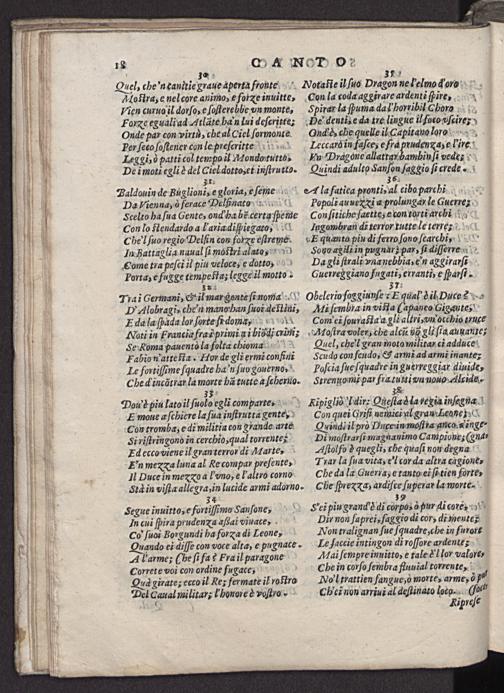 18 CANTO
30
Quel, che 'n canitie graue aperta fronte
Mostra, e nel core animo, e forze inuitte,
Vien curuo il dorso, e sosterebbe vn monte,
Forze eguali ad Atlãte hà'n lui descritte;
Onde par con virtù, che al Ciel sormonte
Per se to sostener con le prescritte
Leggi, ò patti col tempo il Mondo tutto,
De i moti egli è del Ciel dotto, et instrutto.
31
Baldouin de Buglioni, e gloria, e seme
Da Vienna, ò ferace Delfinato
Scelto ha sua Gente, ond'ha bẽ certa speme
Con lo stendardo a l'aria dispiegato,
Che'l suo regio Delfin con forze estreme
In Battaglia naual si mostri alato,
Come tra pesci il piu veloce, e dotto,
Porta, e fugge tempesta; legge il motto.
32
Tra i Germani, & il margente si noma
D'Alobragi, che'n man ortan suoi destini,
E da la spada lor forte si doma,
Noti in Francia fra i primi i biõdi crini;
Se Roma pauentò la folta chioma
Fabio n'attesta. Hor de gli ermi confini
Le fortissime squadre ha'n suo gouerno,
Che d'incõtrar la morte hã tutte a scherno.
33
Dou'è piu lato il suolo egli comparte,
E moue a schiere la sua instrutta gente,
Con tromba, e di militia con grande arte
Si ristringono in cerchio, qual torrente;
Ed ecco viene il gran terror di Marte,
E'n mezza luna al Re compar presente,
Il Duce in mezzo a l'vno, e l'altro corno
Stà in vista allegra, in lucide armi adorno.
34
Segue inuitto, e fortissimo Sansone,
In cui spira prudenza assai viuace,
Co' suoi Borgundi ha forza di Leone,
Quando ei disse con voce alta, e pugnace
A l'arme; Che si fa? Fra il paragone
Correte voi con ordine fugace,
Quà girate; ecco il Re; fermate il rostro
Del Caual militar; l'honore è vostro.
35
Notaste il suo Dragon ne l'elmo d'oro
Con la coda aggirare ardenti spire,
Spirar la spuma da l'horribil Choro
De' denti, e da tre lingue il foco vscire;
Ond'è, che quelle il Capitano loro
Leccarò in fasce, e fra prudenza, e l'ire
Vn Dragone allattar bambin si vede;
Quindi adulto Sanson saggio si crede.
36
A la fatica pronti, al cibo parchi
Popoli auuezzi a prolungar le Guerre;
Con sitiche saette, e con torti archi
Ingombran di terror tutte le terre;
E quanto piu di ferro sono scarchi,
Sono agili in pugnar; par, si disserre
Da gli strali vna nebbia, e'n aggirarsi
Guerreggiano fugati, erranti, e sparsi.
37
Obelerio soggiunse: E qual'è il Duce?
Mi sembra in vista Capaneo Gigante,
Com'ei sourasta à gli altri, vn'occhio truce
Mostra voler, che alcũ nõ gli sia auante;
Quel, che'l gran moto militar ci adduce
Scudo con scudo, & armi ad armi inante;
Poscia sue squadre in guerreggiar diuide,
Strenuo mi par fra tutti vn nouo Alcide.
38
Ripigliò'l dir: Questa è la regia insegna
Con quei Grifi nemici al gran Leone;
Quindi il prò Duce in mostra anco s'inge-
Di mostrarsi magnanimo Campione; (gna
Astolfo è quegli, che quasi non degna
Trar la sua vita, e'l cor da altra cagione,
Che da la Guerra, e tanto ei si tien forte,
Che sprezza, ardisce superar la morte.
39
S'ei piu grand'è di corpo, ò pur di core,
Dir non saprei, saggio di cor, di mente;
Non tralignan sue squadre, che in furore
Le faccie intingon di rossore ardente;
Mai sempre inuitto, e tale è'l lor valore,
Che in corso sembra fluuial torrente,
No'l trattien sangue, ò morte, arme, ò
Ch'ei non arriui al destinato loco.
Riprese